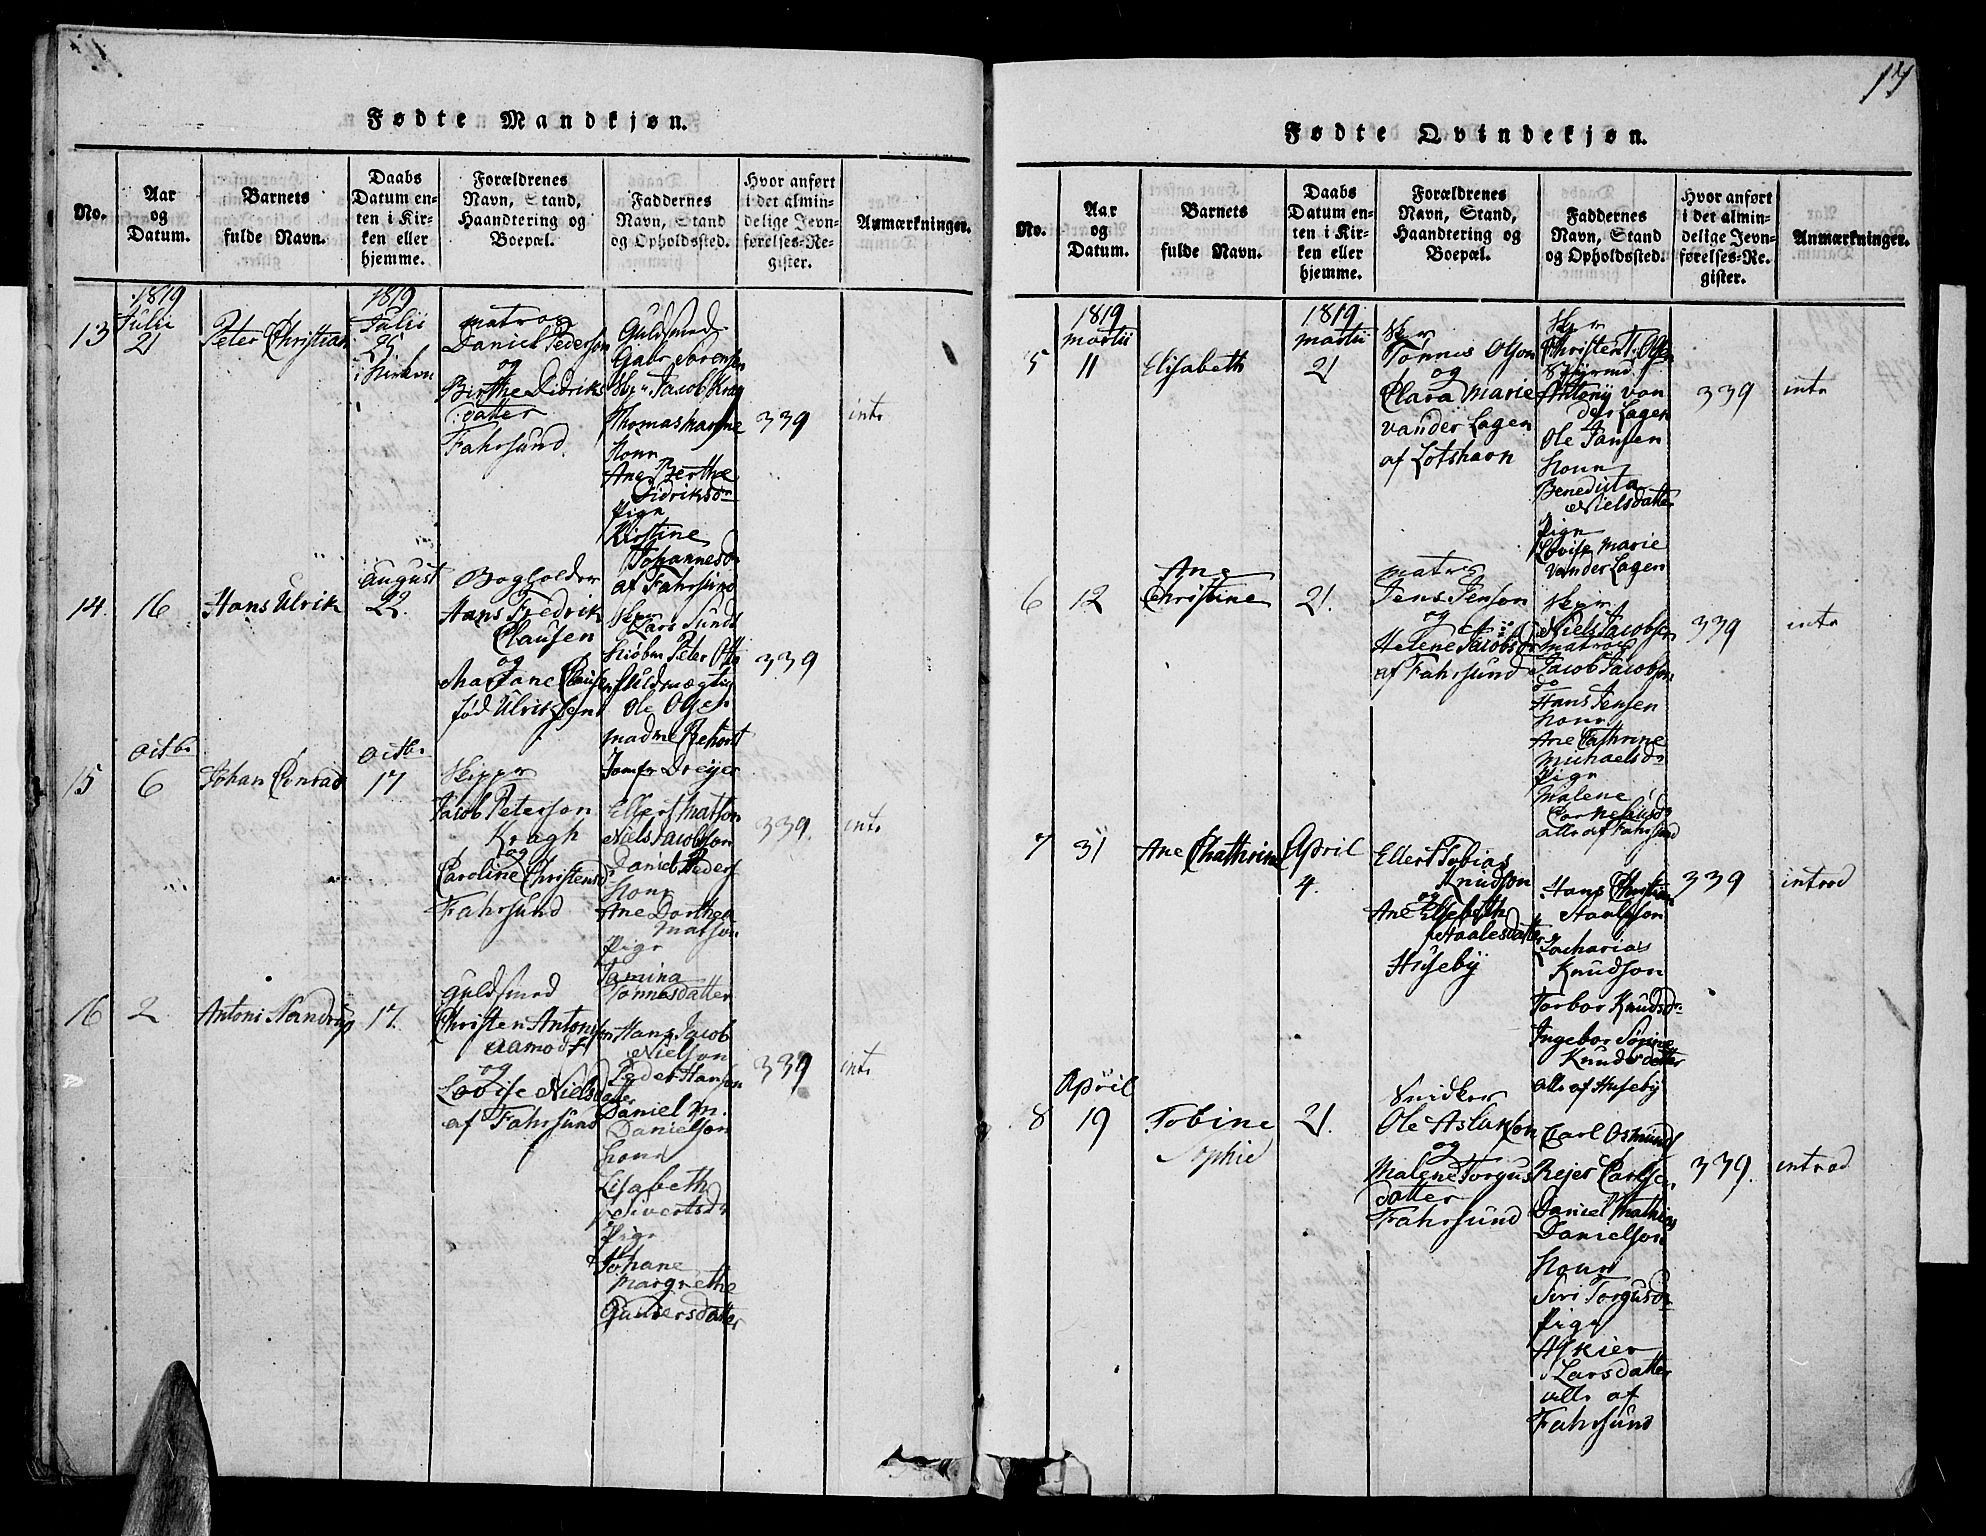 Fødte Mandkjøn.
No.
Aar
og
Datum.
Barnets
fulde Navn.
Daabs
Datum en-
ten i Kir-
ken eller
hjemme.
Forældrenes
Navn, Stand,
Haandtering og
Boepæl.
Faddernes
Navn, Stand
og Opholdssted.
Hvor anført
i det almin-
delige Jevn-
førelses-Re-
gister.
Anmærkninger.
13
1819
Julii
21
Peter Christian
1819
Julii
25
i Kirken
matros
Daniel Pederson
og
Birthe Didriks
datter
Fahrsund.
Guldsmed
Gabr Sørensen
Jacob Krag
Thomas
Konr
Ane Berthe
Didriksdr
Pigr
Kirstine
Johannesdr
af Fahrsund
339
intr
14.
16
Hans Ulrik
august
22.
Bogholder
Hans Fredrik
Clausen
og
Clausen
fød Ulrik
Lars Sunds
Peter Otto
Ole Olsen
madme Rehort
Jomfr Dreyer
339
15
Octbr
6
Johan Conrad
Octbr
17
Skipper
Jacob Peterson
Kragh
og
Caroline Christensd
Fahrsund
Ellert Matson
Niels Jacobson
Daniel Peders
Konr
Ane Dorthea
Matson
Pigr
Tamina
Tønnesdatter
339.
intr
16
2
Antoni Nandrup
17.
Guldsmed
Christen Antonson
Aamodt
og
Lovise Niels
datter
af Fahrsund
Hans Jacob
Nielson
Peder Hanson
Daniel M.
Danielson
Konr
Lisabeth
Sivertsdr
Pigr
Johane
Margrethe
Gundersdatter
339
intr
17
Fødte Qvindekjøn.
No.
Aar
og
Datum.
Barnets
fulde Navn.
Daabs
Datum en-
ten i Kir-
ken eller
hjemme.
Forældrenes
Navn, Stand,
Haandtering og
Boepæl.
Faddernes
Navn, Stand
og Opholdssted.
Hvor anført
i det almin-
delige Jevn-
førelses-Re-
gister.
Anmærkninger.
5
1819
martii
11
Elisabeth
1819
martii
21
Tønnes Olson
og
Clara Marie
vander Lagen
af Lotshavn
Christen T. Olsen
Antony van
der Lagen
Ole Jansen
Konr
Benedicta
Nielsdatter
Pigr
Lovise Marie
vander Lagen
339
intr
6
12
Ane
Christine
21.
matros
Jens Jenson
og
Helene Jacobsdr
af Fahrsund
Niels Jacobson
matros
Jacob Jacobson
do
Hans Jensen
Konr
Ane Cathrine
Michaelsdr
Pigr
Malene
Corneliusdr
alle af Fahrsund
339
intr
7
31
Ane Chathrine
April
4.
Ellert Tobias
Knudson
og
Ane Elsebeth
Staalesdatter
Huseby
Hans Christian
Staalson
Zacharias
Knudson
Torbor Knudsdr
Ingebor Sørine
Knudsdatter
alle af Huseby
339
introd
8
April
19
Tobine
Sophie
21.
Snidker
Ole Aslakson
og
Malene Torgus
datter
Fahrsund
Carl Osmunds
Rejer Carlsen
Daniel Mathias
Danielson
Konr
Siri Torgusdr
Pigr
Askier
Larsdatter
alle af
Fahrsund
339.
introd